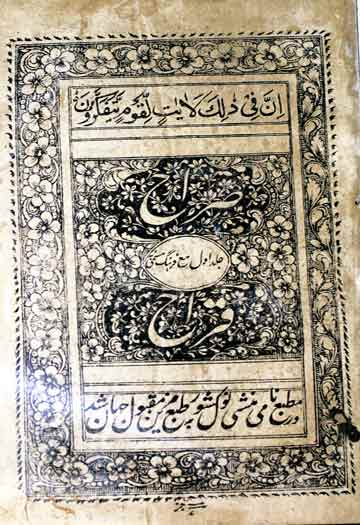 ان في ذلك لايت لقوم يتفكرون
صراح
جلد اول مع فرهنگ
قراح
در مطبع نامی منشی نولکشور بطبع مزین مقبول جهان شد